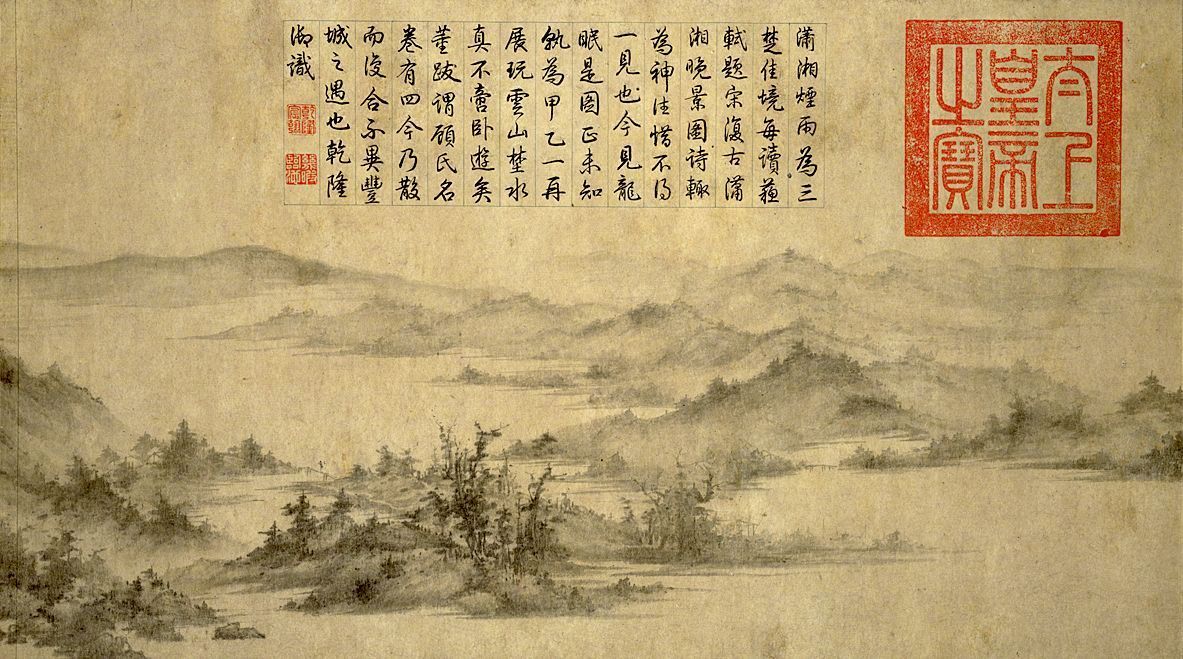 太上
皇帝
之寶
瀟湘煙雨為三
楚佳境每讀蘇
軾題宋復古瀟
湘晚景圖詩輒
為神往惜不得
一見也今見龍
眠是圖正未知
孰為甲乙一再
展玩雲山楚水
真不啻臥遊矣
董跋謂顧氏名
卷有四今乃散
而復合不異豐
城之遇也乾隆
御識
乾隆
宸翰